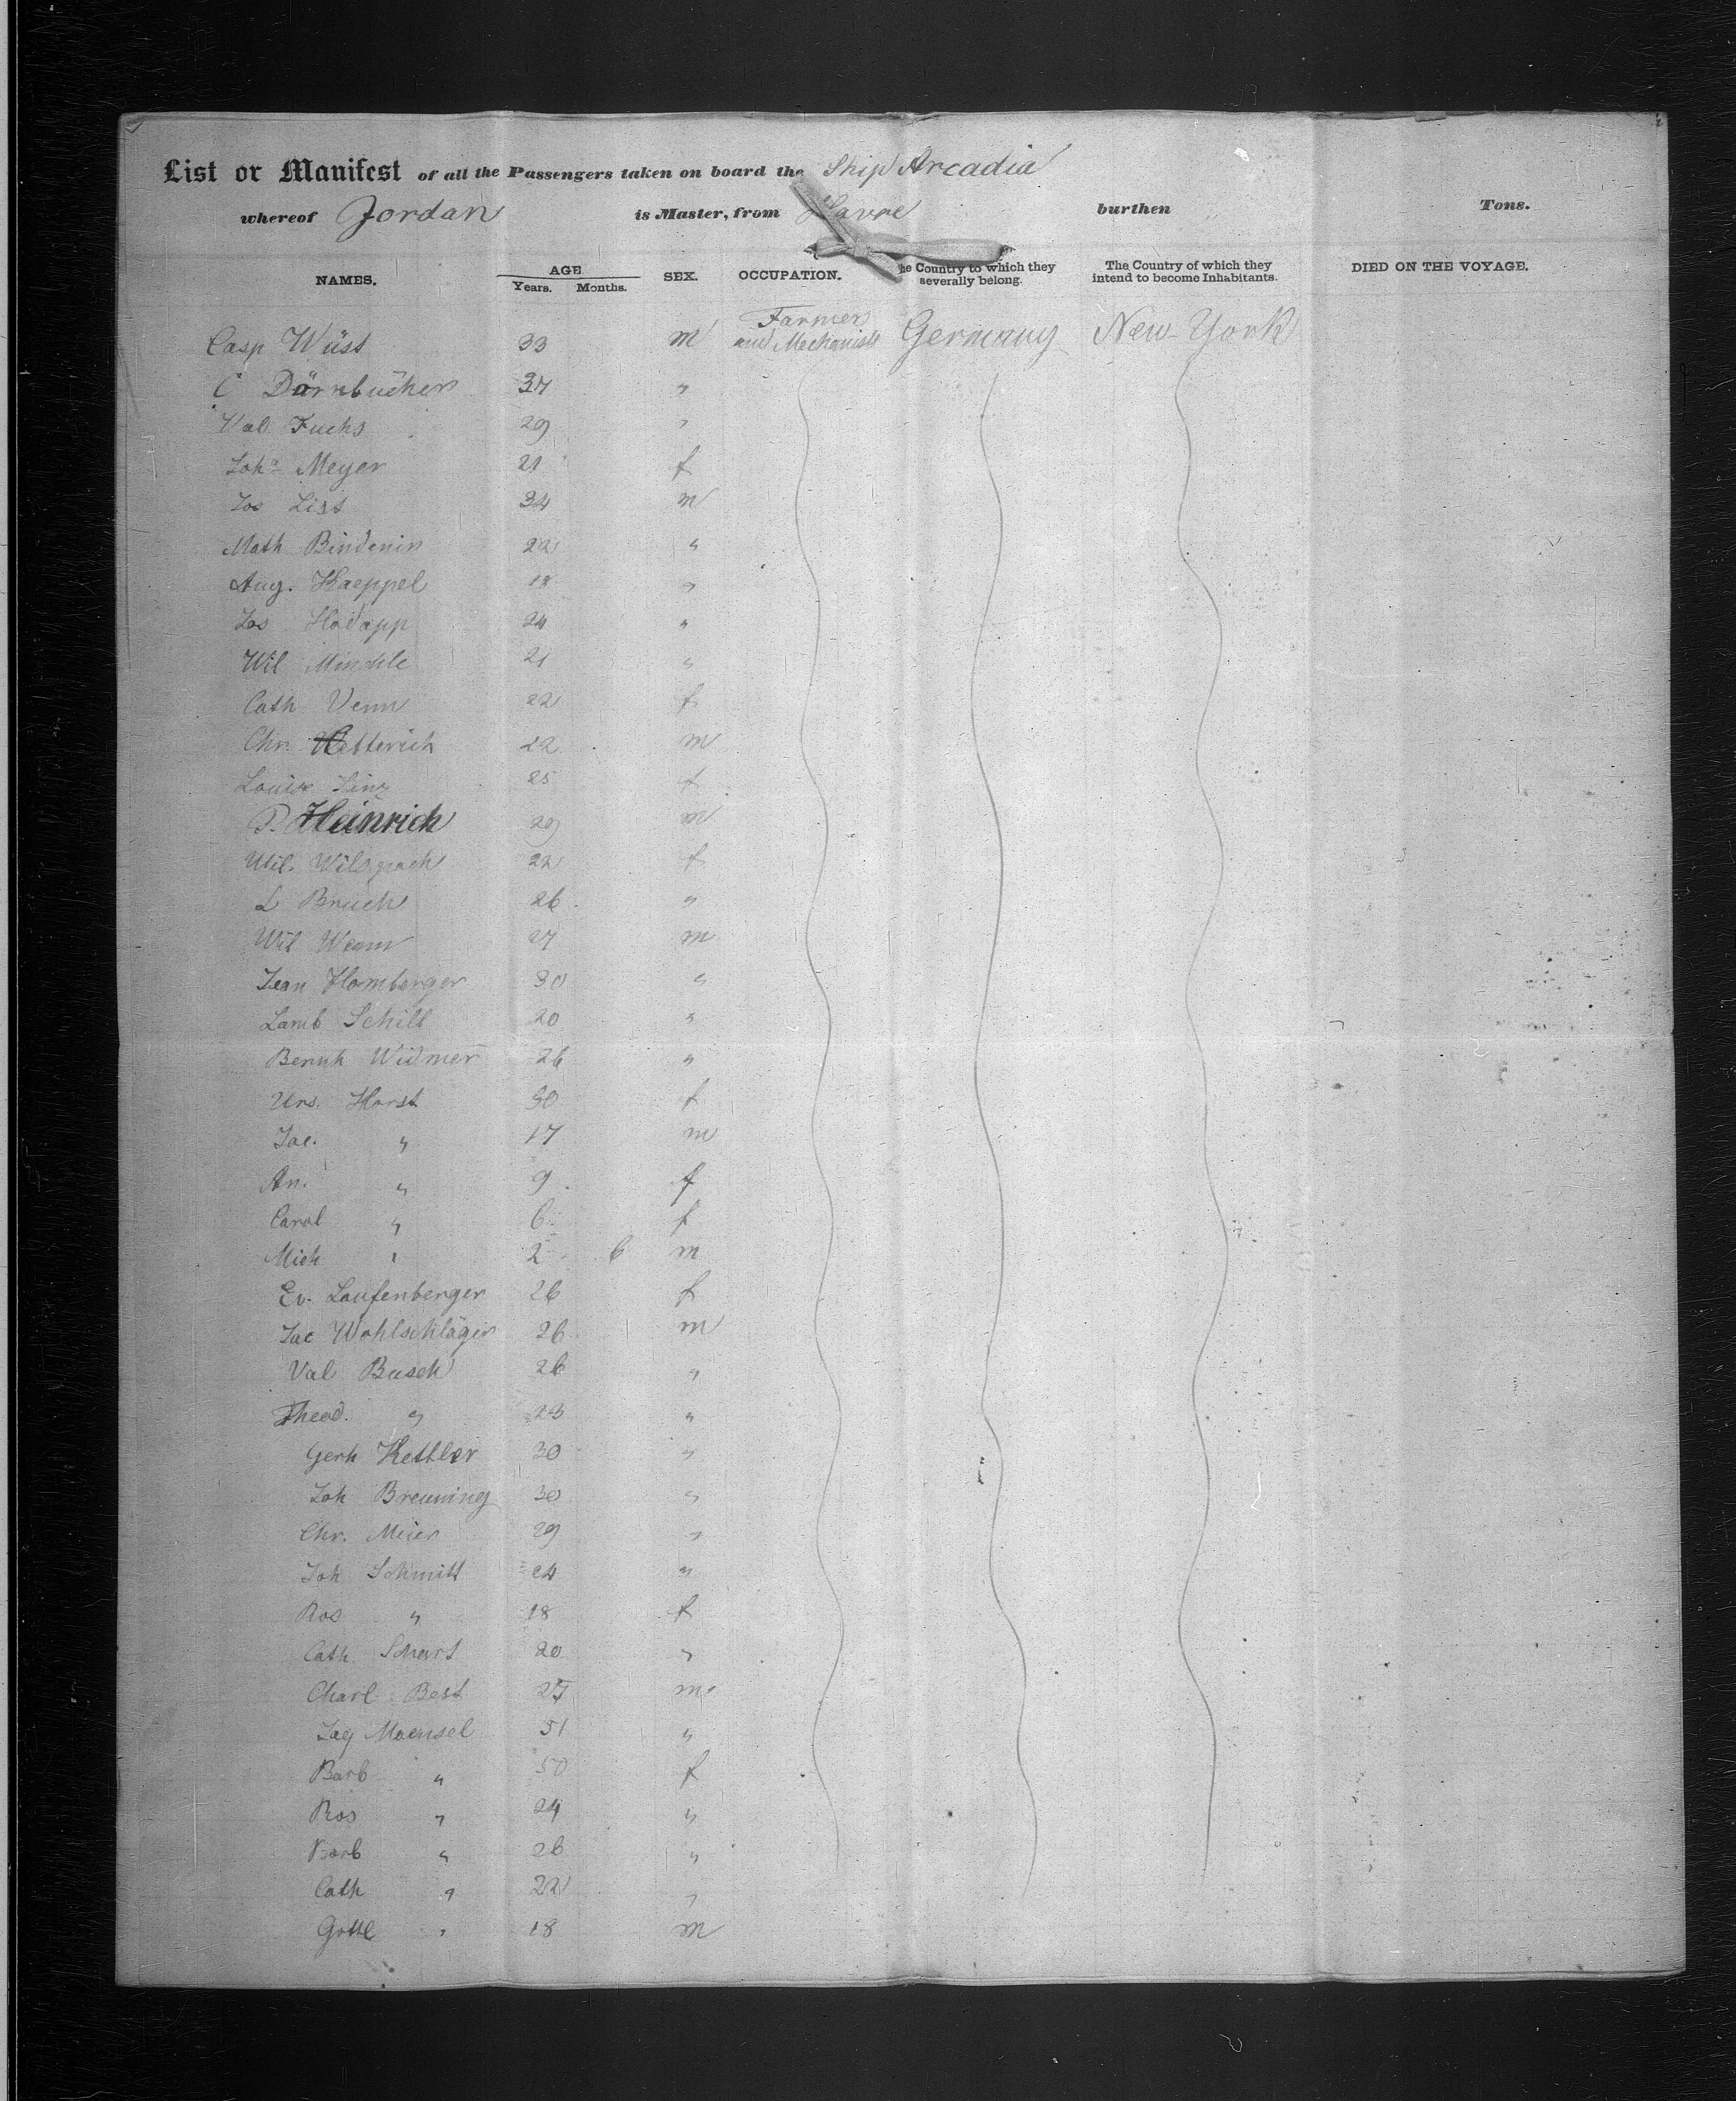 List or Manifest of all the Passengers taken on board the Ship Arcadia
whereof Jordan is Master, from Havre burthen Tons.
NAMES. AGE Years. Months. SEX. OCCUPATION. The Country to which they severally belong. The Country of which they intend to become Inhabitants. DIED ON THE VOYAGE.
Casp Wüst 33 m Farmers and Mechanists Germany New-York
C Dörrnbücher 37 "
Val. Fuchs 29 "
Joha Meyer 21 f
Jos List 34 m
Math Bindenin 22 "
Aug. Kaeppel 18 "
Jos Hodapp 24 "
Wil 21 "
Cath Venn 22 f
Chr. Hetterich 22 m
Louise Linz 25 f
P. Heinrich 29 m
Wil. 22 f
L Bruch 26 "
Wil Wenn 27 m
Jean Homberger 30 "
Lamb Schill 20 "
Bernh Widmer 26 "
Urs. Horst 30 f
Jac. " 17 m
An. " 9 f
Carol " 6 f
Mich " 2 6 m
Ev. Laufenberger 26 f
Jac Wohlschläger 26 m
Val Busch 26 "
Theod. " 23 "
Gerh Kettler 30 "
Joh Breuning 30 "
Chr. Meier 29 "
Joh Schmitt 24 "
Ros " 18 f
Cath 20 "
Charl Best 27 m
Jaq Maensel 51 "
Barb " 50 f
Ros " 24 "
Barb " 26 "
Cath " 22 "
Gottl " 18 m